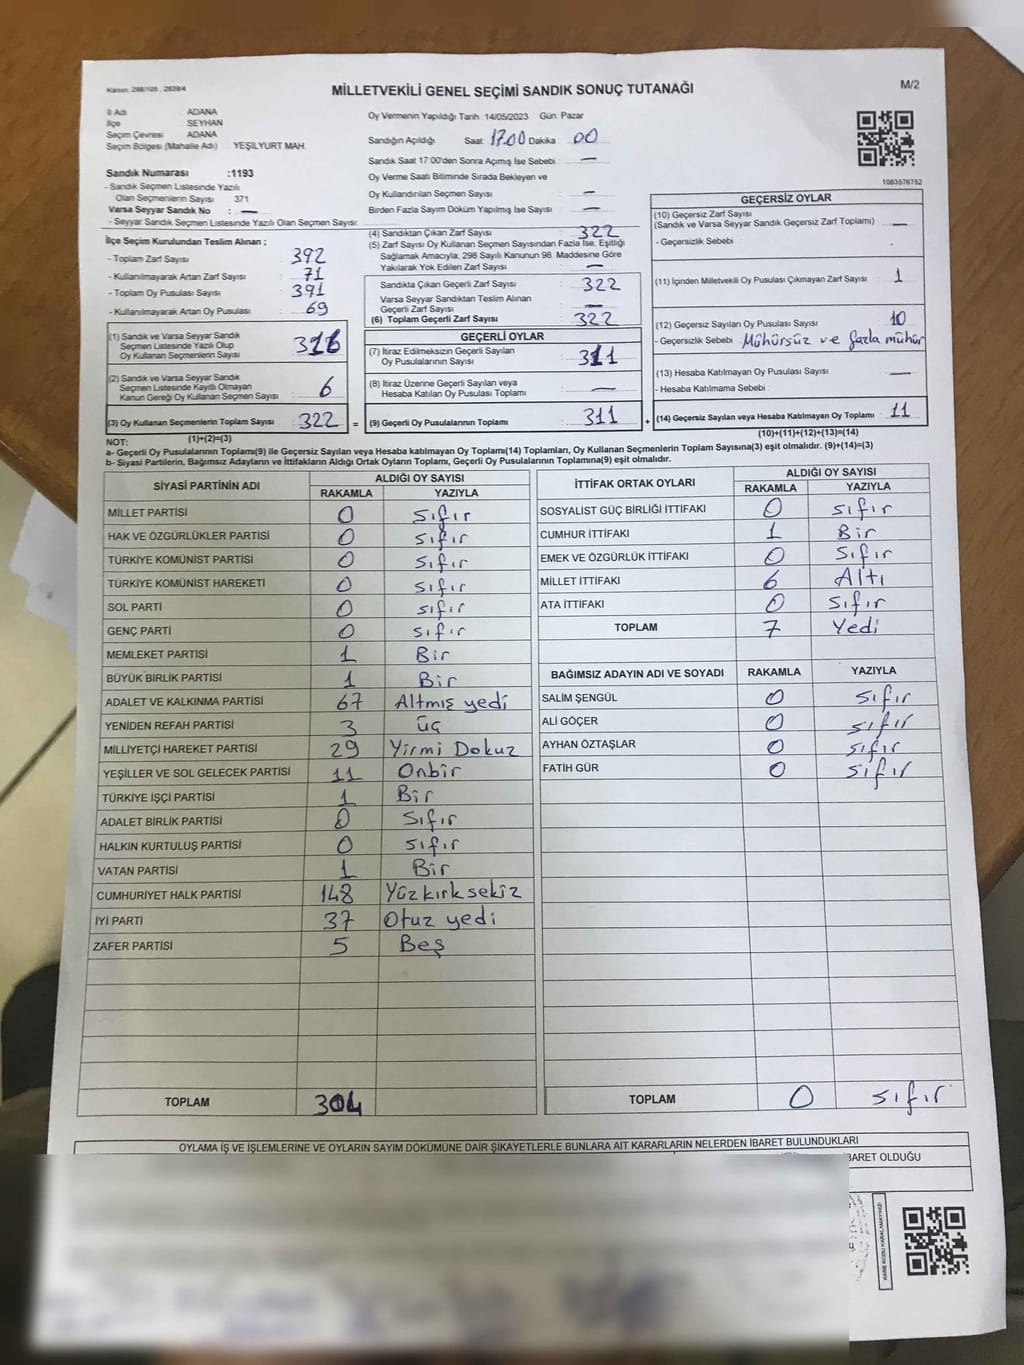 Kanun, 298/105 , 2839/4
MİLLETVEKİLİ GENEL SEÇİMİ SANDIK SONUÇ TUTANAĞI
M/2
İl Adı ADANA
İlçe SEYHAN
Seçim Çevresi ADANA
Seçim Bölgesi (Mahalle Adı) YEŞİLYURT MAH.
Sandık Numarası :1193
- Sandık Seçmen Listesinde Yazılı
Olan Seçmenlerin Sayısı 371
Varsa Seyyar Sandık No : —
- Seyyar Sandık Seçmen Listesinde Yazılı Olan Seçmen Sayısı:
İlçe Seçim Kurulundan Teslim Alınan ;
- Toplam Zarf Sayısı : 392
- Kullanılmayarak Artan Zarf Sayısı : 71
- Toplam Oy Pusulası Sayısı : 391
- Kullanılmayarak Artan Oy Pusulası : 69
(1) Sandık ve Varsa Seyyar Sandık
Seçmen Listesinde Yazılı Olup
Oy Kullanan Seçmenlerin Sayısı : 316
(2) Sandık ve Varsa Seyyar Sandık
Seçmen Listesinde Kayıtlı Olmayan
Kanun Gereği Oy Kullanan Seçmen Sayısı : 6
(3) Oy Kullanan Seçmenlerin Toplam Sayısı : 322 =
(1)+(2)=(3)
Oy Vermenin Yapıldığı Tarih :14/05/2023 Gün: Pazar
Sandığın Açıldığı Saat 17.00 Dakika : 00
Sandık Saat 17:00'den Sonra Açılmış İse Sebebi : —
Oy Verme Saati Bitiminde Sırada Bekleyen ve
Oy Kullandırılan Seçmen Sayısı : —
Birden Fazla Sayım Döküm Yapılmış İse Sayısı : —
(4) Sandıktan Çıkan Zarf Sayısı : 322
(5) Zarf Sayısı Oy Kullanan Seçmen Sayısından Fazla İse, Eşitliği
Sağlamak Amacıyla; 298 Sayılı Kanunun 98. Maddesine Göre
Yakılarak Yok Edilen Zarf Sayısı : —
Sandıkta Çıkan Geçerli Zarf Sayısı : 322
Varsa Seyyar Sandıktan Teslim Alınan
Geçerli Zarf Sayısı : —
(6) Toplam Geçerli Zarf Sayısı : 322
GEÇERLİ OYLAR
(7) İtiraz Edilmeksizin Geçerli Sayılan
Oy Pusulalarının Sayısı : 311
(8) İtiraz Üzerine Geçerli Sayılan veya
Hesaba Katılan Oy Pusulaları Toplamı : —
(9) Geçerli Oy Pusulalarının Toplamı : 311 +
1083576752
GEÇERSİZ OYLAR
(10) Geçersiz Zarf Sayısı
(Sandık ve Varsa Seyyar Sandık Geçersiz Zarf Toplamı) : —
- Geçersizlik Sebebi
(11) İçinden Milletvekili Oy Pusulası Çıkmayan Zarf Sayısı : 1
(12) Geçersiz Sayılan Oy Pusulası Sayısı : 10
- Geçersizlik Sebebi : Mühürsüz ve fazla mühür
(13) Hesaba Katılmayan Oy Pusulası Sayısı : —
- Hesaba Katılmama Sebebi :
(14) Geçersiz Sayılan veya Hesaba Katılmayan Oy Toplamı : 11
(10)+(11)+(12)+(13)=(14)
NOT:
a- Geçerli Oy Pusulalarının Toplamı(9) ile Geçersiz Sayılan veya Hesaba katılmayan Oy Toplamı(14) Toplamları, Oy Kullanan Seçmenlerin Toplam Sayısına(3) eşit olmalıdır. (9)+(14)=(3)
b- Siyasi Partilerin, Bağımsız Adayların ve İttifakların Aldığı Ortak Oyların Toplamı, Geçerli Oy Pusulalarının Toplamına(9) eşit olmalıdır.
SİYASİ PARTİNİN ADI ALDIĞI OY SAYISI
RAKAMLA YAZIYLA
MİLLET PARTİSİ 0 sıfır
HAK VE ÖZGÜRLÜKLER PARTİSİ 0 sıfır
TÜRKİYE KOMÜNİST PARTİSİ 0 sıfır
TÜRKİYE KOMÜNİST HAREKETİ 0 sıfır
SOL PARTİ 0 sıfır
GENÇ PARTİ 0 sıfır
MEMLEKET PARTİSİ 1 Bir
BÜYÜK BİRLİK PARTİSİ 1 Bir
ADALET VE KALKINMA PARTİSİ 67 Altmış yedi
YENİDEN REFAH PARTİSİ 3 üç
MİLLİYETÇİ HAREKET PARTİSİ 29 Yirmi Dokuz
YEŞİLLER VE SOL GELECEK PARTİSİ 11 Onbir
TÜRKİYE İŞÇİ PARTİSİ 1 Bir
ADALET BİRLİK PARTİSİ 0 sıfır
HALKIN KURTULUŞ PARTİSİ 0 sıfır
VATAN PARTİSİ 1 Bir
CUMHURİYET HALK PARTİSİ 148 Yüzkırksekiz
İYİ PARTİ 37 Otuz yedi
ZAFER PARTİSİ 5 Beş
TOPLAM 304
İTTİFAK ORTAK OYLARI ALDIĞI OY SAYISI
RAKAMLA YAZIYLA
SOSYALİST GÜÇ BİRLİĞİ İTTİFAKI 0 sıfır
CUMHUR İTTİFAKI 1 Bir
EMEK VE ÖZGÜRLÜK İTTİFAKI 0 sıfır
MİLLET İTTİFAKI 6 Altı
ATA İTTİFAKI 0 sıfır
TOPLAM 7 Yedi
BAĞIMSIZ ADAYIN ADI VE SOYADI RAKAMLA YAZIYLA
SALİM ŞENGÜL 0 sıfır
ALİ GÖÇER 0 sıfır
AYHAN ÖZTAŞLAR 0 sıfır
FATİH GÜR 0 sıfır
TOPLAM 0 sıfır
OYLAMA İŞ VE İŞLEMLERİNE VE OYLARIN SAYIM DÖKÜMÜNE DAİR ŞİKAYETLERLE BUNLARA AİT KARARLARIN NELERDEN İBARET BULUNDUKLARI
İBARET OLDUĞU
KARE KODU KARALAMAYINIZ!